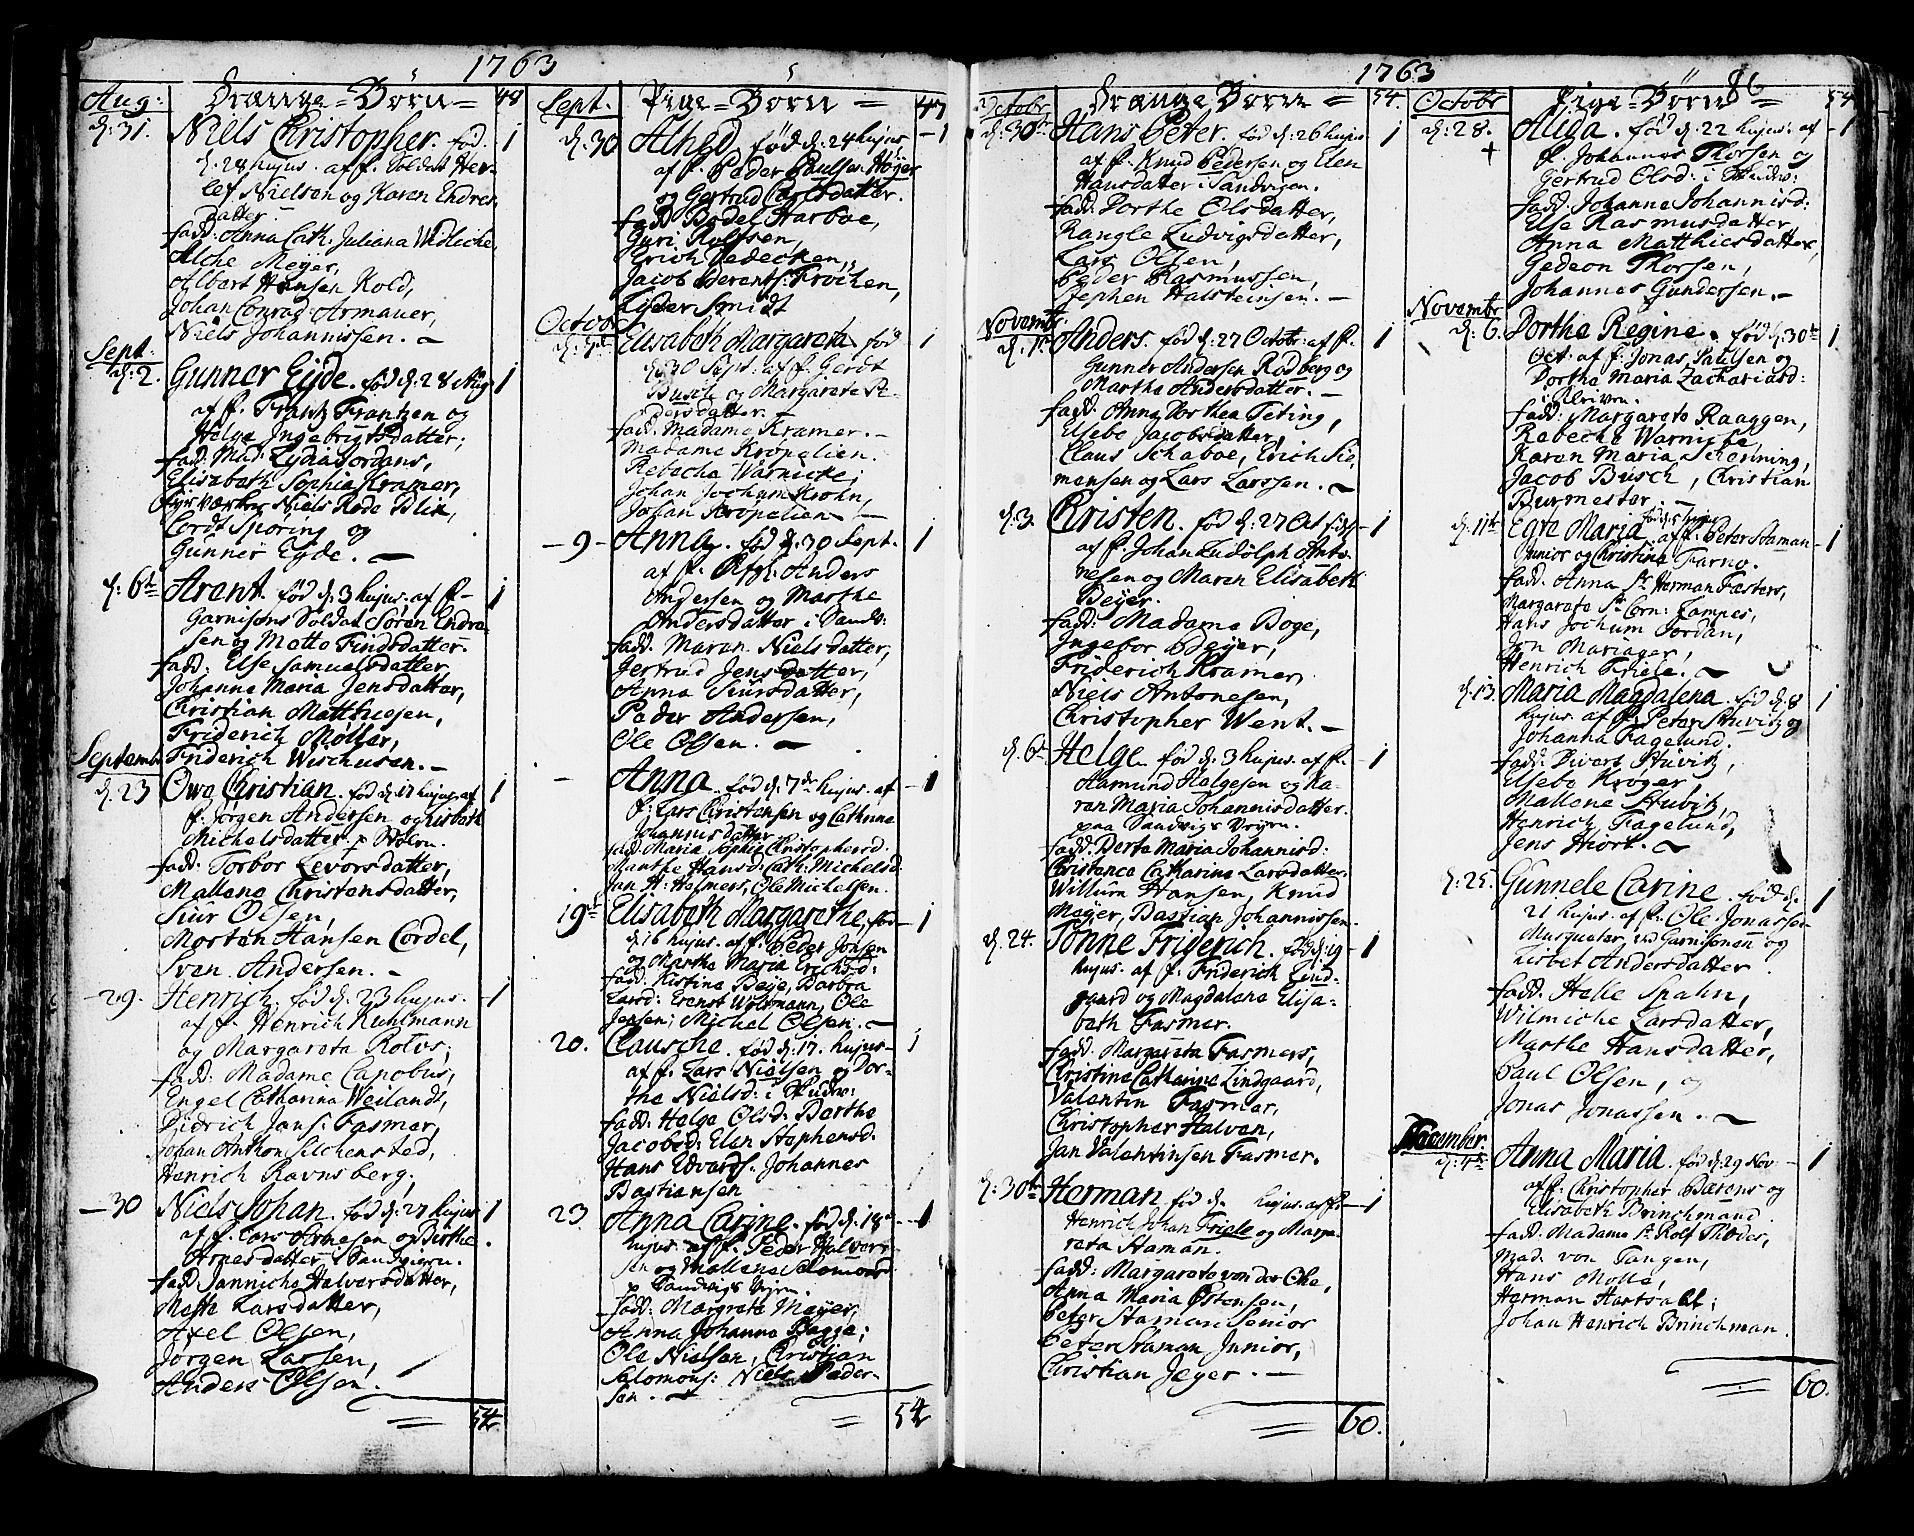 1763
Aug: Drænge-Børn = 48
d. 31. Niels Christopher. fød. 1
d. 28 hujus. af f. Soldat Her-
lef Nielsen og Karen Endres
datter.
fadd: Anna Cath. Juliana Widliche
Alche Meÿer,
Albert Hansen Kold,
Johan Conrad Armauer,
Niels Johannissen.
Sept:
d. 2. Gunner Eyde. fød d. 28 Aug 1
af f. Frantz Frantzen og
Helge Ingebrigtsdatter;
fadd: Mad: Lydia Jordans,
Elisabeth Sophia Kramer,
Niels Rode Blix,
Cordt Sporing og
Gunner Eyde.
d. 6te Arent. fød d. 3 hujus. af f. 1
Garnisons Soldat Søren Endre-
sen og Motto Findsdatter.
fadd: Else Samuelsdatter
Johanna Maria Jensdatter,
Christian Matthiesen,
Friderich Møller,
Friderich Wischusen.
Septemb
d. 23 Owe Christian. fød d. 17 hujus. af 1
f. Jørgen Andersen og Lisbeth
Michelsdatter p
fadd: Torbor Levorsdatter,
Mallene Christensdatter,
Siur Olsen,
Morten Hansen Cordel,
Sven Andersen.
29. Henrich. fød d. 23 hujus. 1
af f. Henrich Kuhlmann
og Margareta Rolvs;
fadd: Madame Canobus,
Engel Catharina Weilandt,
Didrich Jans: Fasmer,
Johan Anthon Selchensted,
Henrich Ravnsberg;
30 Niels Johan. fød d. 27 hujus 1
af f. Lars Arnesen og Birthe
Arnesdatter i Sandvigen.
fadd: Jannicha Halversdatter,
Mette Larsdatter,
Axel Olsen,
Jørgen Larsen,
Anders Olsen.
54
Sept. Pige-Børn = 47
d. 30 Alhed, fød d: 24 hujus, 1
af f. Peder Paulsen Høÿer
og Gertrud Carlsdatter.
fadd: Bodel Harboe,
Guri Rolfsen,
Erich Dedecken,
Jacob Berents: Frochen,
Lyder Smidt
Octobr
Elisabeth Margareta fød 1
d. 30 Sept: af f. Gerdt
Busch og Margareta P-
dersdatter.
fadd: Madame Kramer.
Madame Kropelien.
Rebecha Warnicke;
Johan Jochum Krohn,
Johan Kropelien.
9 Anna. fød d: 30 Sept. 1
af f. Anders
Andersen og Marthe
Andersdatter i Sandv:
fadd: Maren Nielsdatter,
Gertrud Jensdatter,
Anna Siursdatter,
Peder Andersen,
Ole Olsen.
Anna. fød d: 7de hujus. af 1
f: Lars Christensen og Cathrine
Johannisdatter
fad: Maria Sophie Christophersd.
Marthe Hansd: Cath: Michelsd
Jan H: Holmers, Ole Michelsen.
19de Elisabeth Margarethe, fød 1
d. 16 hujus. af f. Peder Jonsen
og Marthe Maria Erichsd:
fadd: Kistina Beÿe, Barbra
Larsd: Erenst Woltmann, Ole
Jensen, Michel Olsen.
20. Clausche. fød d: 17. hujus 1
af f. Lars Nielsen og Dor-
the Nielsd: i Studv:
fadd: Helge Olsd: Berthe
Jacobsd: Elen Stephensd.
Hans Edvards: Johannes
Bastiansen
23. Anna Carine. fød d: 18de 1
hujus. af f. Peder Halvers-
sen og Mallene Salomonsd
p Sandvigs Vejen.
fadd: Margreta Meÿer,
Anna Johanna Bagge;
Ole Nielsen, Christian
Salomons: Niels Peder-
sen.
54
1763
Octobr Drænge Børn = 54.
d: 30te Hans Peter. fød d: 26 hujus 1
af f. Knud Pedersen og Elen
Hansdatter i Sandvigen.
fadd: Dorthe Olsdatter,
Rangle Ludvigsdatter,
Lars Olsen,
Peder Rasmussen,
Stephen Halsteinsen.
Novembr
Anders. fød d: 27 Octobr: af f. 1
Gunner Andersen Rødberg og
Marthe Andersdatter.
fadd: Anna Dorthea Teting,
Elsebe Jacobsdatter,
Claus Schaboe, Erich Sie,
mensen og Lars Larssen.
d. 3. Christen. fød d: 27 Oct. 1
af f. Johan Ludolph Anto-
nesen og Maren Elisabeth
Beÿer.
fadd: Madame Boge,
Ingebor Beÿer,
Friderich Kramer,
Niels Antonesen,
Christopher Went.
d. 6te Helge fød d: 3 hujus. af f. 1
Hamund Helgesen og Ka-
ren Maria Johannisdatter.
paa Sandvigs Vejen.
fadd: Berta Maria Johannisd:
Christence Catharina Larsdatter
Willum Hansen, Knud
Meÿer, Bastian Johannissen.
d. 24. Tønne Friderich. fød d: 19 1
hujus. af f. Friderich Lind-
gaard og Magdalena Elisa-
beth Fasmer.
fadd: Margareta Fasmers,
Christine Catharine Lindgaard,
Valentin Fasmer,
Christopher Halven,
Jan Valentinsen Fasmer.
d: 30te Herman. fød d. hujus. af f. 1
Henrich Johan Friele og Marga-
reta Staman.
fadd: Margareta von der Ohe,
Anna Maria Østensen,
Peter Staman Senior
Peter Staman Junior,
Christian Jeger.
60.
1763 86
Octobr Pige-Børn = 54
d: 28. Aliga. fød d: 22 hujus: af 1
+ f. Johannes Thorsen og
Gertrud Olsd: i Studv:
fadd: Johanna Johannisd:
Else Rasmusdatter,
Anna Matthiesdatter,
Gedeon Thorsen,
Johannes Gundersen.
Novembr
d: 6. Dorthe Regine. fød d. 30te 1
Oct. af f: Jonas Paulsen og
Dorthe Maria Zachariasd:
fadd: Margareta Raaggen,
Rebecka Warnicke,
Karen Maria Schenning,
Jacob Busch, Christian
Burmester.
d. 11te Egte Maria fød d: 5 hujus af f: Peter Staman 1
Junior og Christina Farno.
fadd: Anna Sr Herman Fasters,
Margareta Sr Corn: Lampes,
Hans Jochum Jordan,
Jon Mariager,
Henrich Friele.
d. 13. Maria Magdalena. fød d. 8 1
hujus af f. Peter Stuvitz og
Johanna Fagelund.
fadd: Divert Stuvitz,
Elsebe Krøger,
Mallene Stuvitz,
Henrich Fagelund,
Jens Hiort.
d: 25. Gunnele Carine. fød d. 1
21 hujus. af f. Ole Jonassen
Musqueter ved Garnisonen og
Lisbet Andersdatter.
fadd: Helle Spahn,
Wilmiche Larsdatter,
Marthe Hansdatter,
Paul Olsen, og
Jonas Jonassen.
December.
d: 4de Anna Maria. fød d: 29 Nov 1
af f: Christopher Bærens og
Elisabeth Brinchmand.
fadd: Madame Sr Rolf Thodes,
Mad. von Tangen,
Hans Molle,
Herman Hartsahl;
Johan Henrich Brinchman.
60.